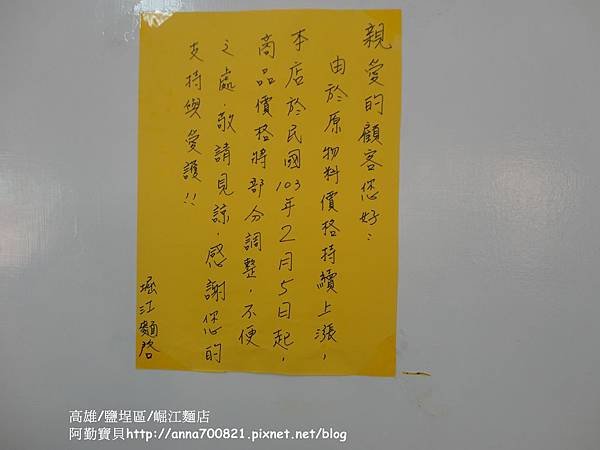 親愛的顧客您好：
由於原物料價格持續上漲，
本店於民國103年2月5日起，
商品價格將部分調整，不便
之處，敬請見諒，感謝您的
支持與愛護!!
堀江麵啓
高雄/鹽埕區/崛江麵店
阿勤寶貝http://anna700821.pixnet.net/blog